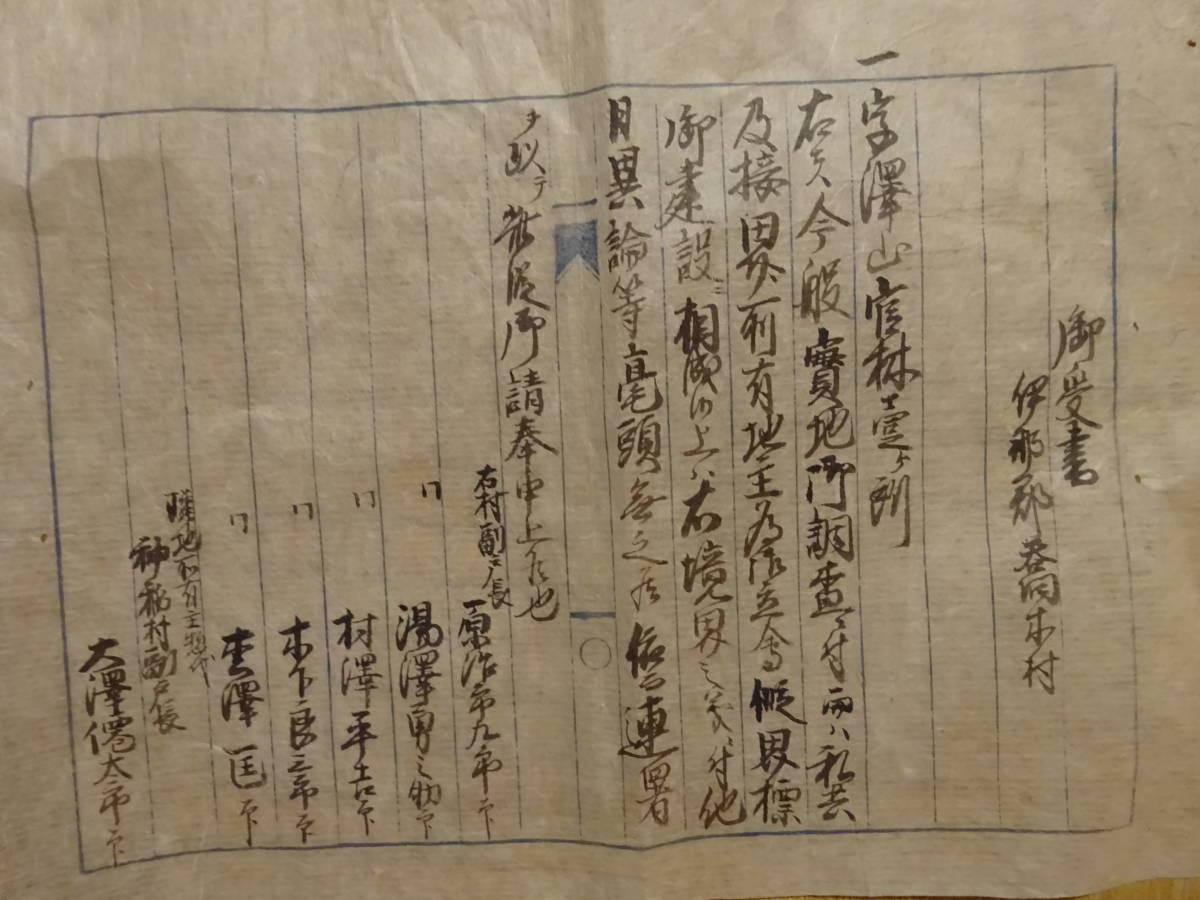 御受書
伊那郡 村
一 字澤山官林壹ヶ所
右ハ今般實地御調査ニ付而ハ私共
及接界所有地主為御立會假界標
御建設ニ相成候上ハ右境界之義ニ付他
日異論等毫頭無之候依而連署
ヲ以テ御請奉申上候也
右村副戸長
原治市九郎 印
〃 湯澤勇之助 印
〃 村澤平吉 印
〃 木下良三郎 印
〃 澤匡 印
隣地所有主惣代
神稲村副戸長
大澤 太郎 印